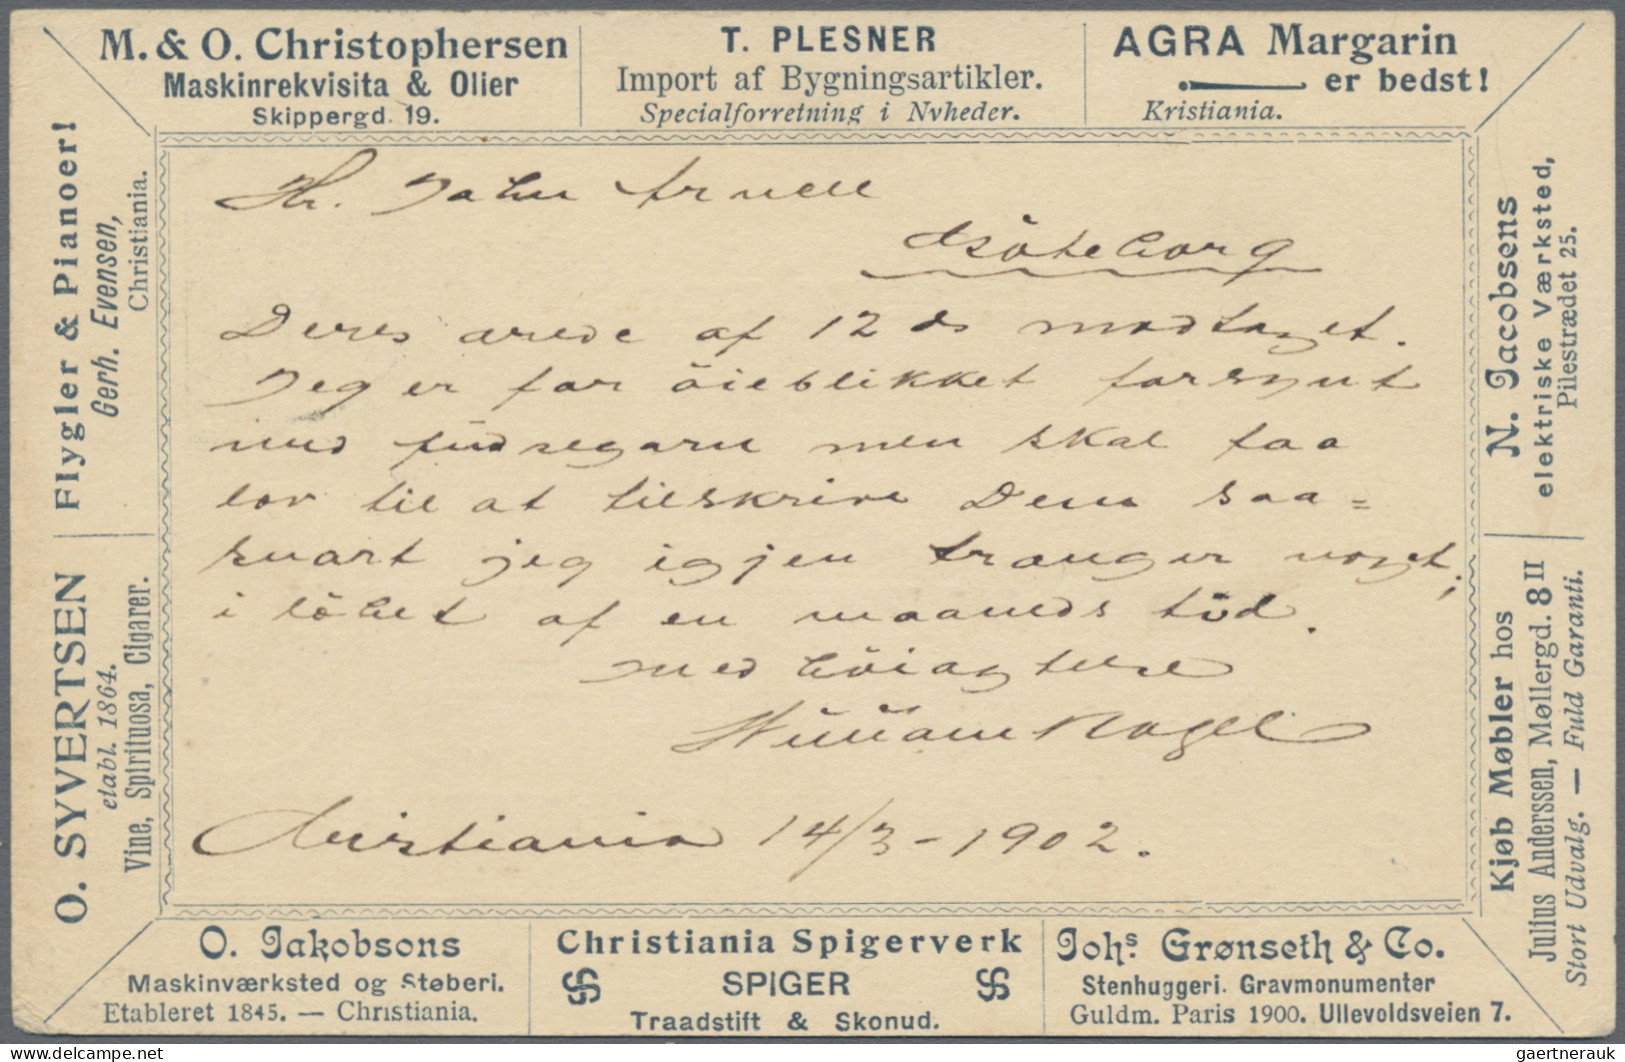 M. & O. Christophersen
Maskinrekvisita & Olier
Skippergd. 19.
T. PLESNER
Import af Bygningsartikler.
Specialforretning i Nyheder.
AGRA Margarin
er bedst!
Kristiania.
Flygler & Pianoer!
Gerh. Evensen,
Christiania.
O. SYVERTSEN
etabl. 1864.
Vine, Spirituosa, Cigarer.
Hr. John Arnell
Göteborg
Deres ærede af 12 ds modtaget.
Jeg er for öieblikket forsynt
med
men skal taa
lov til at tilskrive Dem saa=
snart jeg igjen trænger noget,
i löbet af en maaneds tid.
Med höiagtelse
William Nagel
Christiania 14/3-1902.
N. Jacobsens
elektriske Værksted,
Pilestrædet 25.
Kjøb Møbler hos
Julius Anderssen, Møllergd. 8 II
Stort Udvalg. — Fuld Garanti.
O. Jakobsons
Maskinværksted og Støberi.
Etableret 1845. — Christiania.
Christiania Spigerverk
SPIGER
Traadstift & Skonud.
Johs. Grønseth & Co.
Stenhuggeri. Gravmonumenter
Guldm. Paris 1900. Ullevoldsveien 7.
www.delcampe.net
gaertnerauk